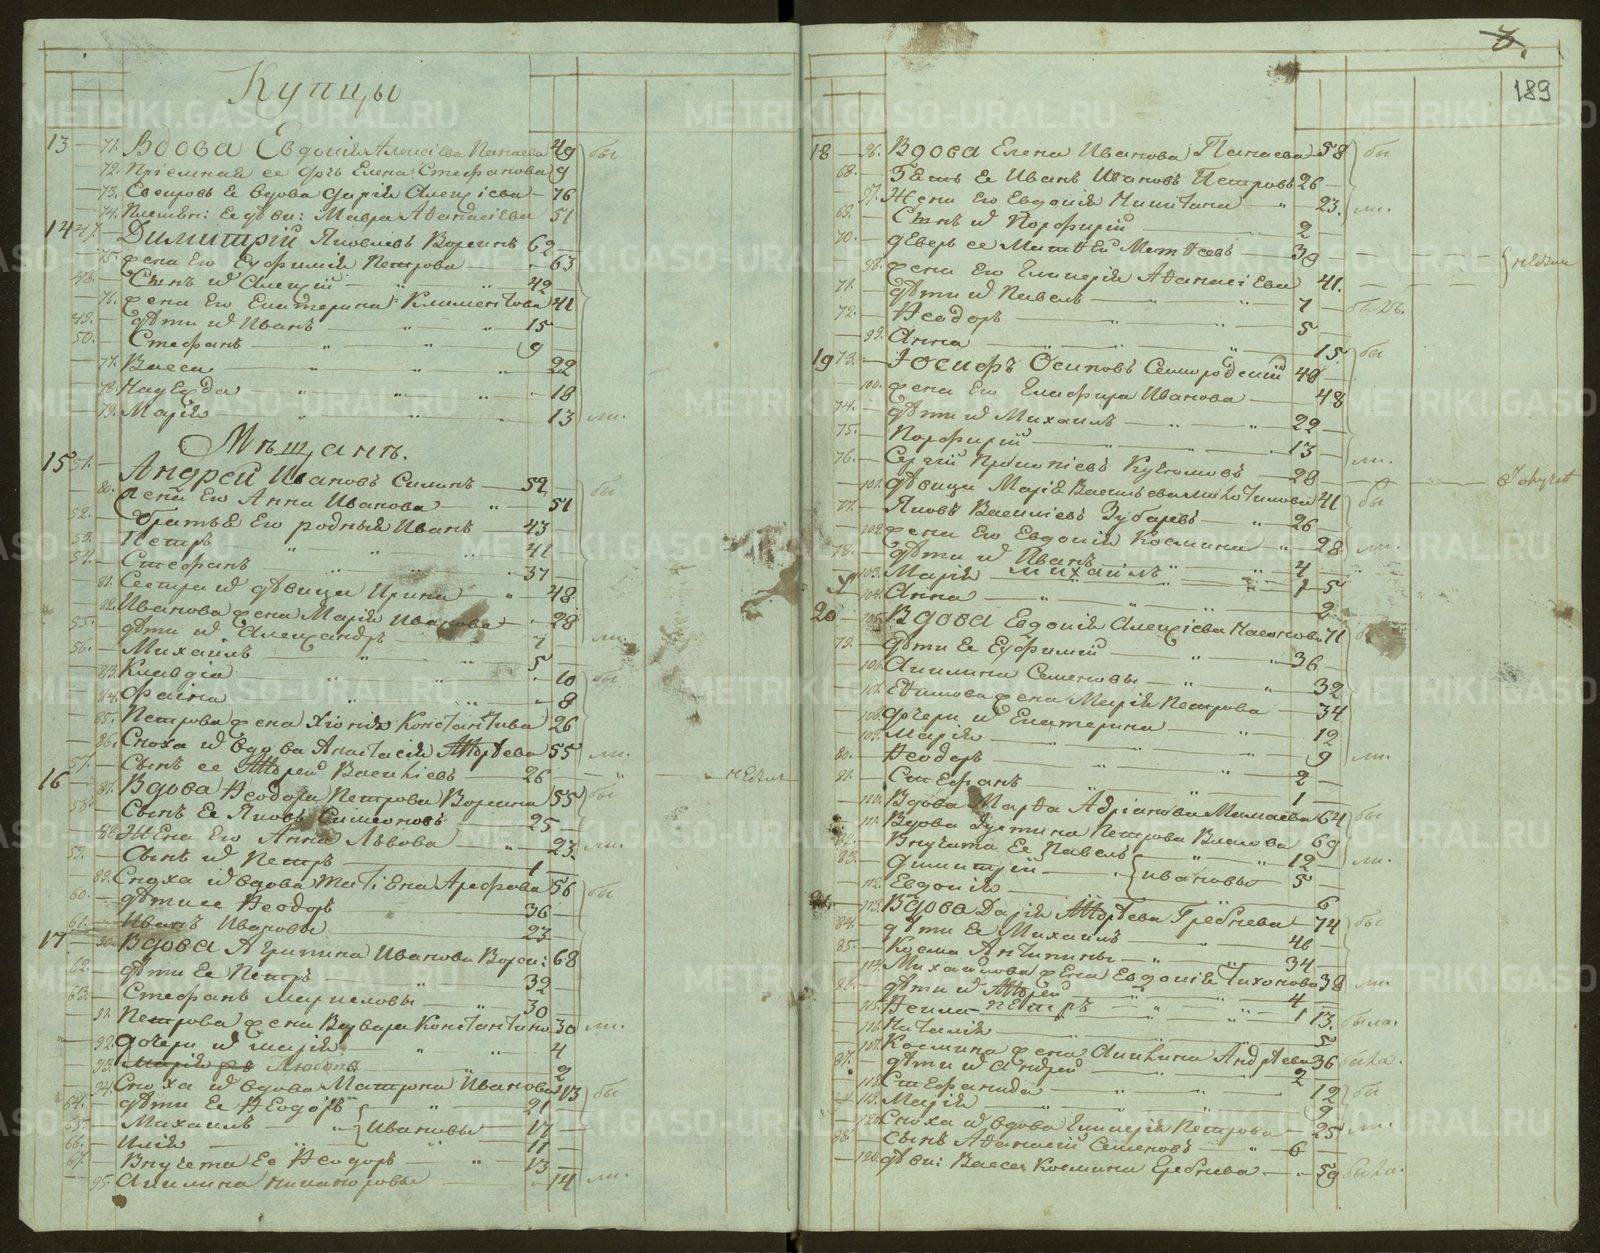 Купцы
13 71. Вдова Евдокия Алексіева Панаева 49 бы
72. Пріемная ее дочь Елена Стефанова 9
73. Свекровь ее вдова Дарія Алексіева 76
74. Племян: ее дѣви: Мавра Аѳанасіева 51
14 47. Димитрій Яковлевъ Воронинъ 62
75. жена Его Евфимія Петрова 63
48. Сынъ и Алексій 42
76. жена Его Екатерина Климентова 41
49. дѣти и Иванъ 15
50. Стефанъ 9
77. Васса 22
78. Надежда 18
79. Марія 13 ли.
Мѣщанъ.
15 51. Андрей Ивановъ Силинъ 59
80. жена Его Анна Иванова 51 бы
52. братья Его родныя Иванъ 43
53. Петръ 41
54. Стефанъ 37
81. Сестра и дѣвица Ирина 48
82. Иванова жена Марія Иванова 28
55. дѣти и Александръ 7 ли.
56. Михаилъ 5
83. Клавдіа 10 бы
84. Фаина 8
85. Петрова жена Хіонія Константива 26
86. Сноха и вдова Анастасія Андреева 55 ли.
57. Сынъ ее Андрей Василіевъ 26
16 87. Вдова Ѳеодора Петрова Воронина 55 бы
58. Сынъ Ее Яковъ Симеоновъ 25
88. Жена Его Анна Львова 23. ли.
59. Сынъ и Петръ 1
89. Сноха и вдова Татіана Арефова 56 бы
60. дѣти ее Ѳеодоръ 36
61. Иванъ Ивановы 23
17 90. Вдова Агрипина Иванова Ворон: 68
62. дѣти Ее Петръ 32
63. Стефанъ Мариковы 30
91. Петрова жена Варвара Константино 30 ли.
92. дочери и Марія 4
93. Любовь 2
94. Сноха и вдова Матрона Иванова 43 бы
64. дѣти Ее Ѳеодоръ 21
65. Михаилъ Ивановы 17
66. Илія 11
67. Внучата Ее Ѳеодоръ 13
95. Акилина Никаноровы 14 ли.
189
18 96. Вдова Елена Иванова Панаева 58 бы
68. Зять Ее Иванъ Ивановъ Петровъ 26
97. Жена Его Евдокія Никитина 23. ли.
69. Сынъ и Порфирій 2
70. деверь ее Матѳей Матѳеевъ 39
98. жена Его Гликерія Аѳанасіева 41.
71. дѣти и Павелъ 7
72. Ѳеодоръ 5
99. Анна 15 бы
19 73. Іосифъ Осиповъ Самородскій 48
100. жена Его Глафира Иванова 48
74. дѣти и Михаилъ 22
75. Порфирій 13
76. Сергій Прокопіевъ 28 ли.
101. дѣвица Марія Васильева 41 бы
77. Яковъ Василіевъ Зубаревъ 26
102. жена Его Евдокія Космина 28 ли.
78. дѣти и Иванъ 4
Михаилъ 1
103. Марія 5
104. Анна 2
20 105. Вдова Евдокія Алексіева 71
79. дѣти Ее Евфимій 36
106. Акилина Семеновы 32
107. Евфимова жена Марія Петрова 34
108. дочери и Екатерина
109. Марія 12
80. Ѳеодоръ 9 ли.
81. Стефанъ 2
110. Вдова Марѳа Адріанова Мамаева 64 бы
111. Вдова Устина Петрова Власова 69
82. Внучата Ее Павелъ 12 ли.
83. Димитрій Ивановы 5
112. Евдокія 6
113. Вдова Дарія Андреева Гребнева 74 бы
84. дѣти Ее Михаилъ 46
85. Косма Антипины 34
114. Михаилова жена Евдокія Тихонова 38 ли.
86. дѣти и Андрей 4
Петръ 1
115. Ѳекла 13. была.
116. Наталія 5
117. Космина жена Акилина Андреева 36 была.
87. дѣти и Андрей 2
118. Стефанида 12 бы
119. Марія 9
120. Сноха и вдова Гликерія Петрова 25 ли.
88. Сынъ Аѳанасій Семеновъ 6
120. дѣви: Васса Космина Гребнева 59 была.
METRIKI.GASO-URAL.RU